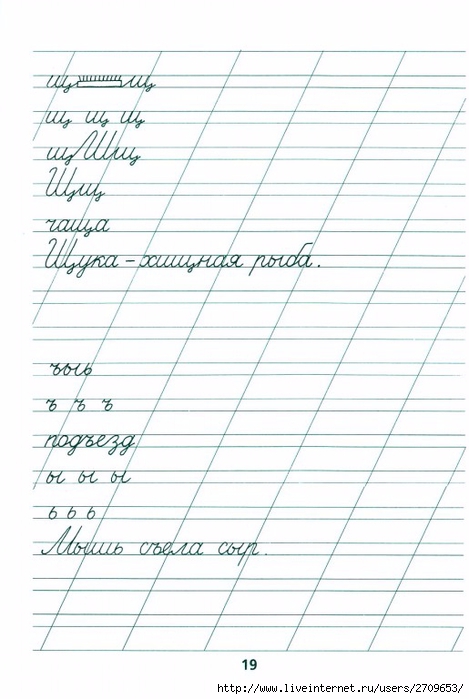 щ щ
щ щ щ
щ Щ щ
Щ щ
чаща
Щука – хищная рыба.
ъ ы ь
ъ ъ ъ
подъезд
ы ы ы
ь ь ь
Мышь съела сыр.
19
http://www.liveinternet.ru/users/2709653/